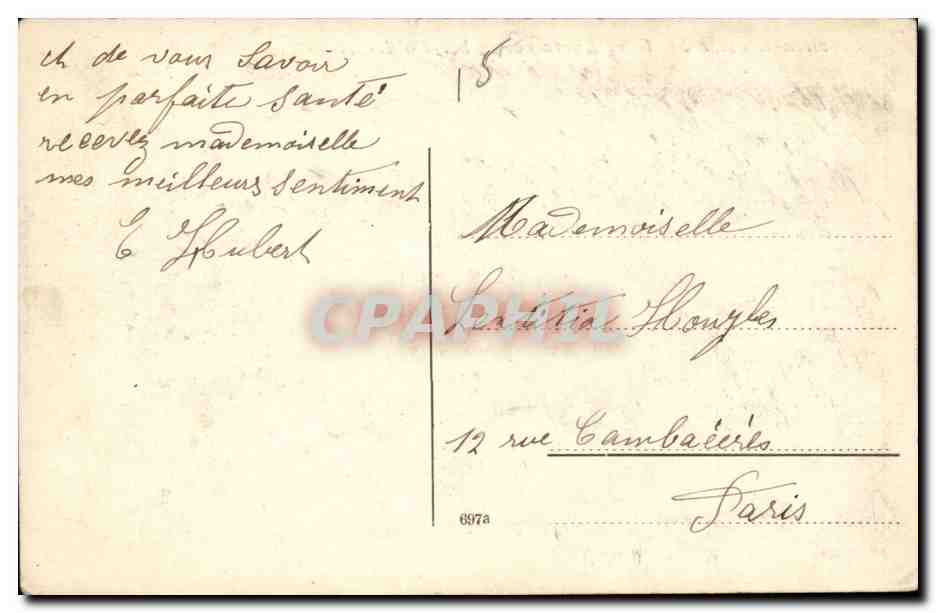 et de vous savoir
en parfaite santé
recevez mademoiselle
mes meilleurs sentiment
E Hubert
15
Mademoiselle
12 rue Cambacérès
Paris
697a
CPAPHIL